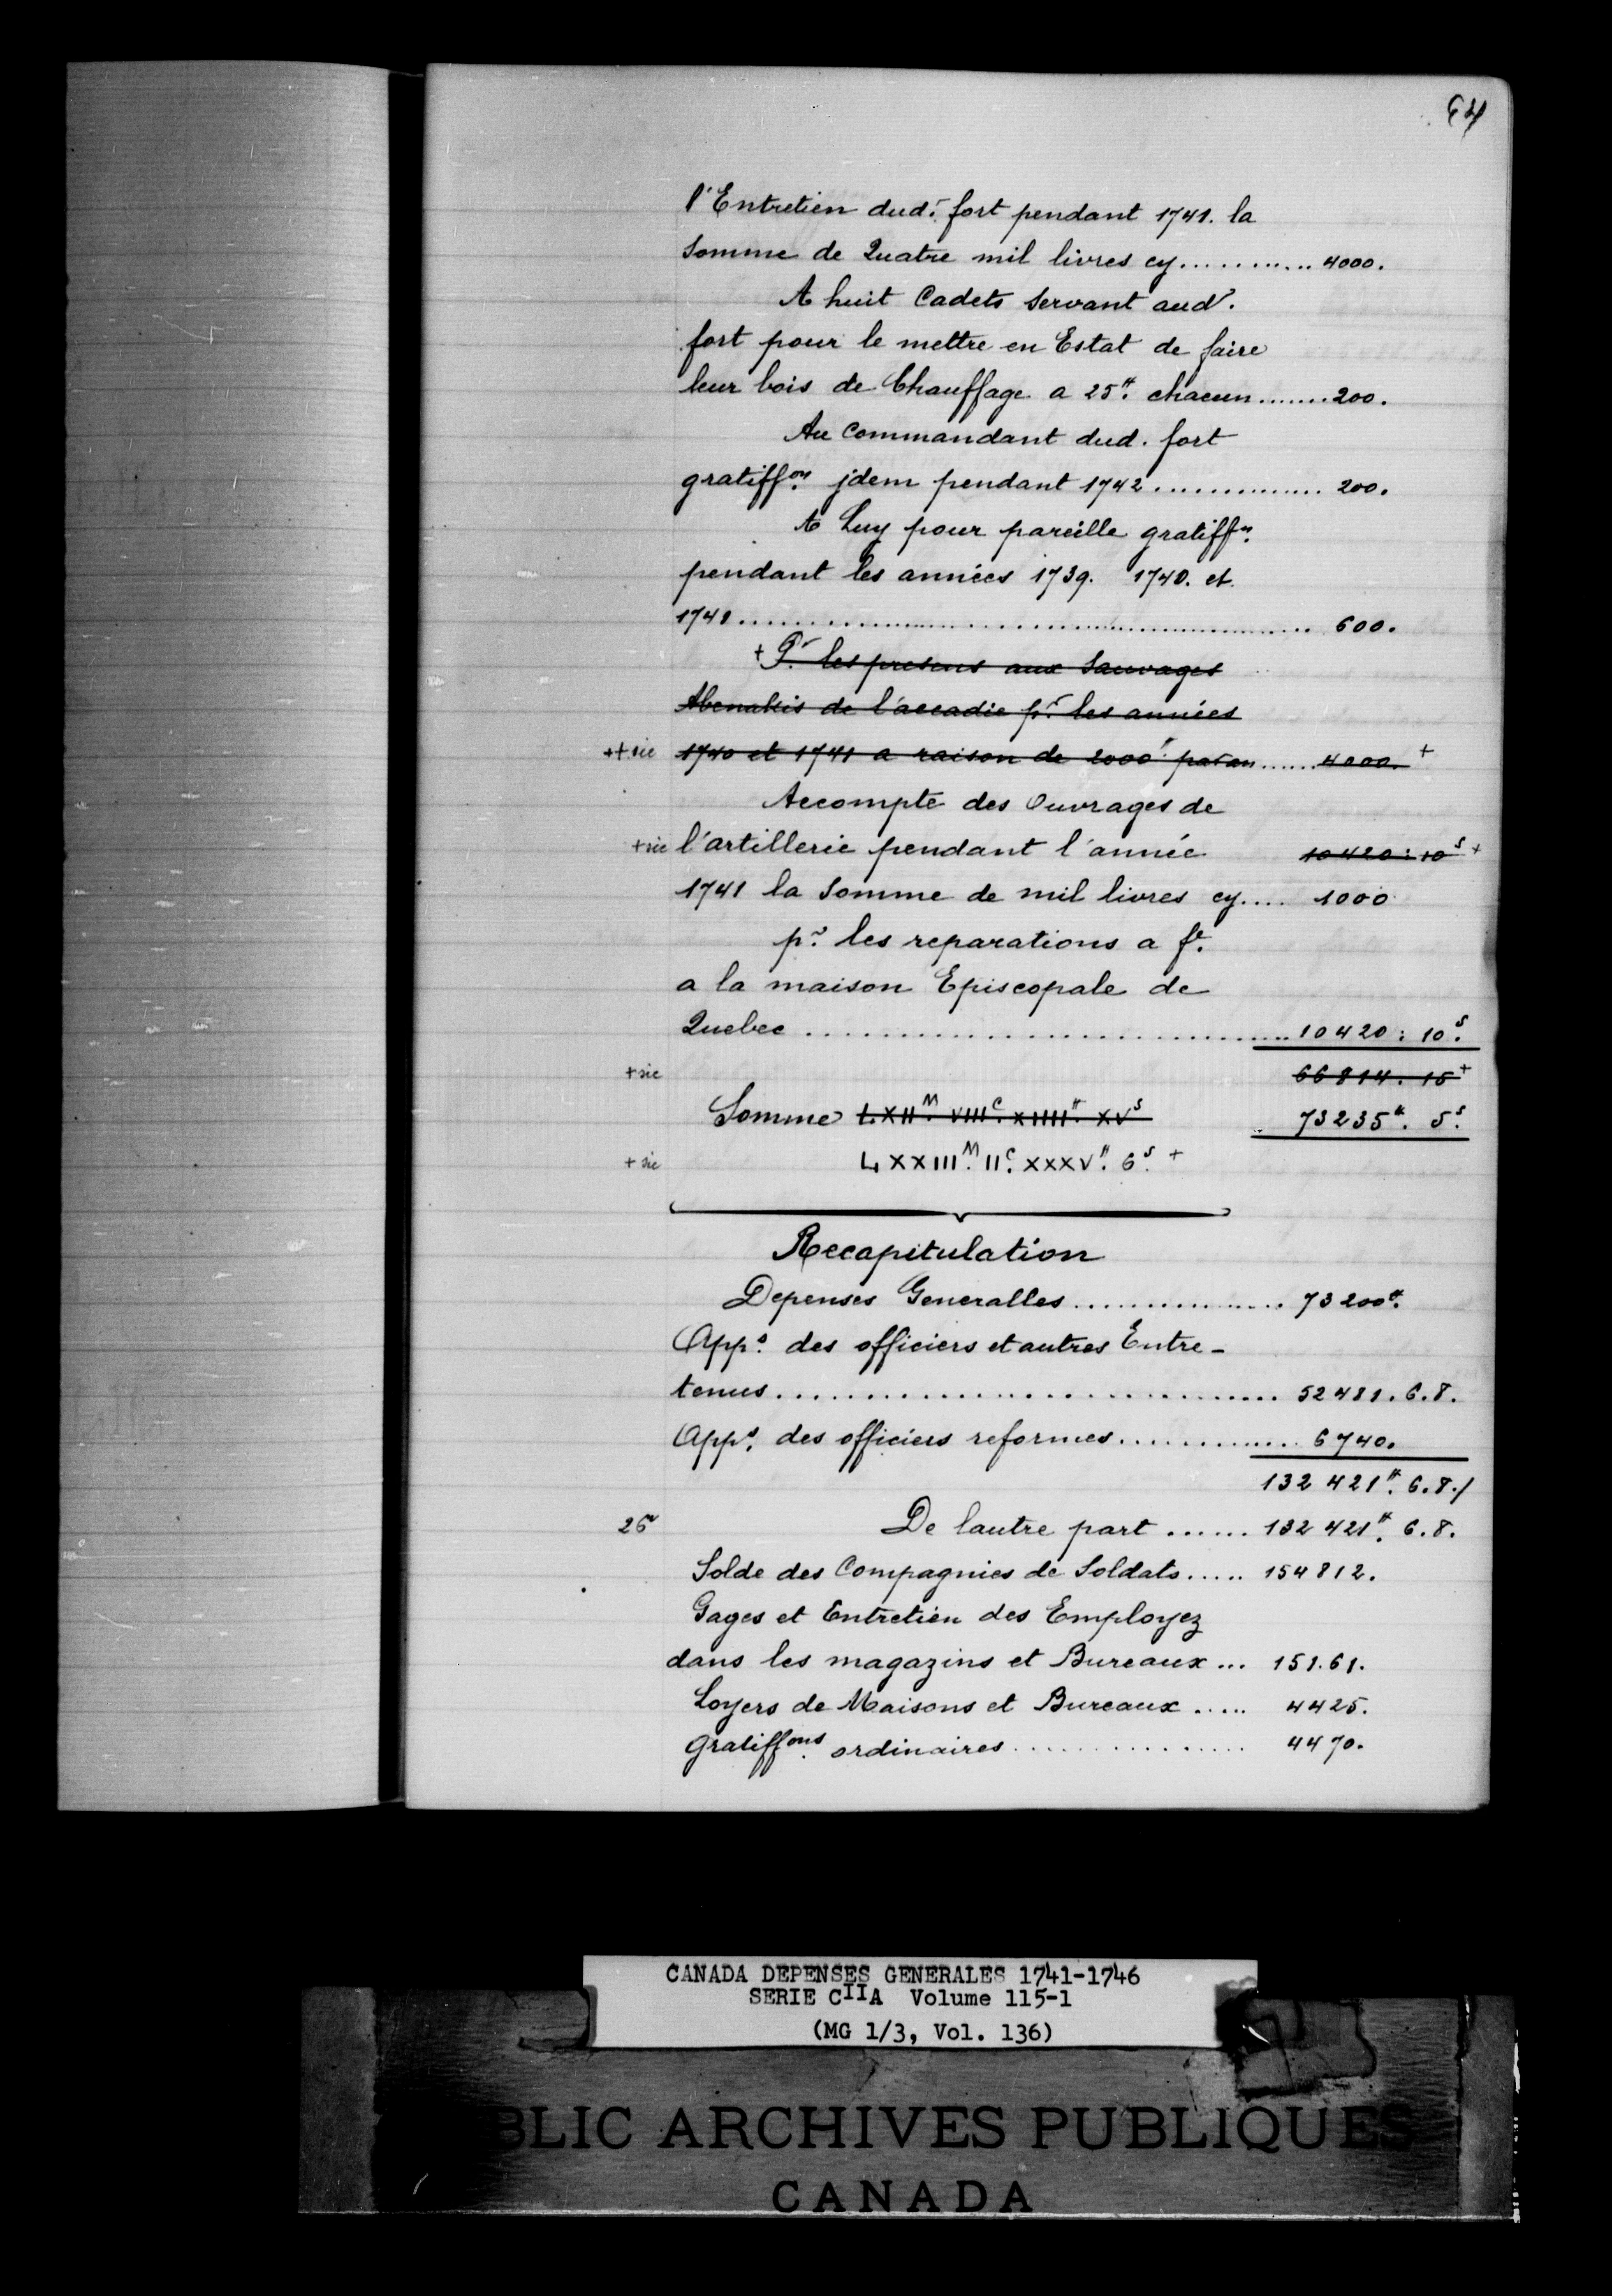 64
l'Entretien dud.t fort pendant 1741. la
Somme de Quatre mil livres cy............ 4000.
A huit Cadets Servant aud.t
fort pour le mettre en Estat de faire
leur bois de Chauffage a 25.# chacun........200.
Au Commandant dud. fort
gratiff.on jdem pendant 1742............... 200.
A Luy pour pareille gratiff.n
pendant les années 1739. 1740. et
1741............................................... 600.
+ P.r les presens aux Sauvages
Abenakis de l'accadie p.r les années
++sic 1740 et 1741 a raison de 2000# par an......4000. +
Accompte des Ouvrages de
+sic l'artillerie pendant l'année 10420:10.s +
1741 la Somme de mil livres cy.... 1000
p.r les reparations a f.e
a la maison Episcopale de
Quebec ..............................10420:10.s
+sic 66814.15 +
Somme LXII.M VIII.C XIIII.# XV.s 73235.# 5.s
+sic LXXIII.M II.C XXXV.# 6.s +
Recapitulation
Depenses Generalles................ 73200.#
App.s des officiers et autres Entre-
tenus.............................. 52481.6.8.
App.s des officiers reformes............. 6740.
132421.# 6.8./
26v De lautre part ...... 132421.# 6.8.
Solde des Compagnies de Soldats..... 154812.
Gages et Entretien des Employez
dans les magazins et Bureaux... 151.61.
Loyers de Maisons et Bureaux ..... 4425.
Gratiff.ons ordinaires................ 4470.
CANADA DEPENSES GENERALES 1741-1746
SERIE CIIA Volume 115-1
(MG 1/3, Vol. 136)
BLIC ARCHIVES PUBLIQUES
CANADA